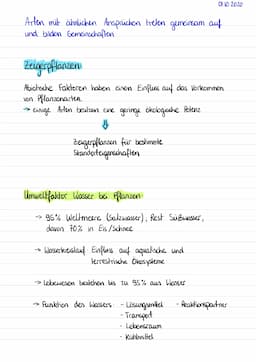 01.10.2020
Arten mit ähnlichen Ansprüchen treten gemeinsam auf
und bilden Gemeinschaften
Zeigerpflanzen
Abiotische Faktoren haben einen Einfluss auf das Vorkommen
von Pflanzenarten.
→ einige Arten besitzen eine geringe ökologische Potenz
⇓
Zeigerpflanzen für bestimmte
Standorteigenschaften
Umweltfaktor Wasser bei Pflanzen
→ 96% Weltmeere (Salzwasser), Rest Süßwasser,
davon 70% in Eis/Schnee
→ Wasserkreislauf: Einfluss auf aquatische und
terrestrische Ökosysteme
→ Lebewesen bestehen bis zu 95% aus Wasser
→ Funktion des Wassers: - Lösungsmittel - Reaktionspartner
- Transport
- Lebensraum
- Kühlmittel